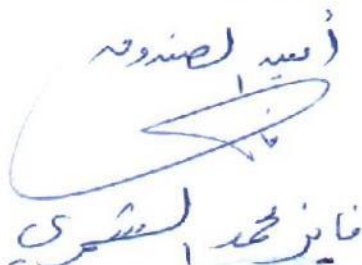 أمين الصندوق
فايز محمد الشمري